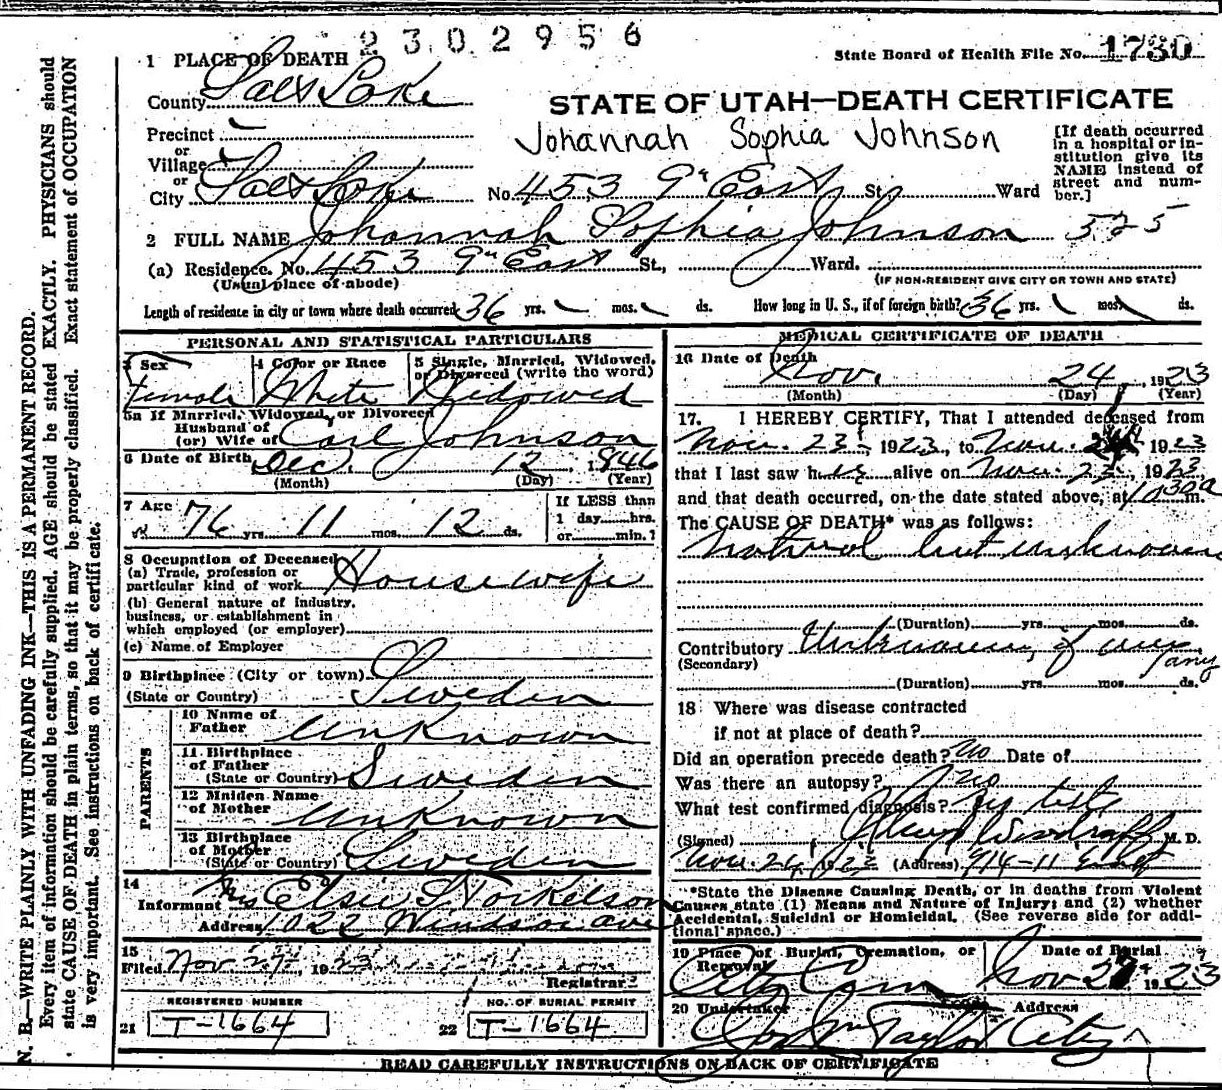 2302956
State Board of Health File No. 1730
1 PLACE OF DEATH
County Salt Lake
STATE OF UTAH—DEATH CERTIFICATE
Precinct
or
Village
or
City Salt Lake
Johannah Sophia Johnson
No. 453 9" East St, Ward
[If death occurred
in a hospital or in-
stitution give its
NAME instead of
street and num-
ber.]
2 FULL NAME Johannah Sophia Johnson 525
(a) Residence. No. 453 9" East St., Ward.
(Usual place of abode)
(IF NON-RESIDENT GIVE CITY OR TOWN AND STATE)
Length of residence in city or town where death occurred 36 yrs. mos. ds. How long in U. S., if of foreign birth? 36 yrs. mos. ds.
PERSONAL AND STATISTICAL PARTICULARS
3 Sex
Female
4 Color or Race
White
5 Single, Married, Widowed,
or Divorced (write the word)
Widowed
5a If Married, Widowed, or Divorced
Husband of
(or) Wife of Carl Johnson
6 Date of Birth Dec. 12, 1846
(Month) (Day) (Year)
7 Age
76 yrs. 11 mos. 12 ds.
If LESS than
1 day......hrs.
or......min.?
8 Occupation of Deceased
(a) Trade, profession or
particular kind of work Housewife
(b) General nature of industry,
business, or establishment in
which employed (or employer)
(c) Name of Employer
9 Birthplace (City or town)
(State or Country) Sweden
PARENTS
10 Name of
Father Unknown
11 Birthplace
of Father
(State or Country) Sweden
12 Maiden Name
of Mother Unknown
13 Birthplace
of Mother
(State or Country) Sweden
14
Informant Mrs Elsie S Torkelson
Address 1022 Windsor ave
15
Filed Nov 27 1923
Registrar
REGISTERED NUMBER
21 T-1664
NO. OF BURIAL PERMIT
22 T-1664
MEDICAL CERTIFICATE OF DEATH
16 Date of Death
Nov. 24, 1923
(Month) (Day) (Year)
17. I HEREBY CERTIFY, That I attended deceased from
Nov. 23, 1923, to Nov. 24 1923
that I last saw her alive on Nov. 23, 1923
and that death occurred, on the date stated above, at 1030a m.
The CAUSE OF DEATH* was as follows:
Natural but unknown
(Duration) yrs. mos. ds.
Contributory Unknown, if any
(Secondary)
any
(Duration) yrs. mos. ds.
18 Where was disease contracted
if not at place of death?
Did an operation precede death? No Date of
Was there an autopsy? No
What test confirmed diagnosis? No tests
(Signed) Woodruff M. D.
Nov. 24, 1923 (Address) 914-11 East
*State the Disease Causing Death, or in deaths from Violent
Causes state (1) Means and Nature of Injury; and (2) whether
Accidental, Suicidal or Homicidal. (See reverse side for addi-
tional space.)
19 Place of Burial, Cremation, or
Removal
City Cem
Date of Burial
Nov 27 1923
20 Undertaker Address
Taylor City
READ CAREFULLY INSTRUCTIONS ON BACK OF CERTIFICATE
N. B.—WRITE PLAINLY WITH UNFADING INK—THIS IS A PERMANENT RECORD.
Every item of information should be carefully supplied. AGE should be stated EXACTLY. PHYSICIANS should
state CAUSE OF DEATH in plain terms, so that it may be properly classified. Exact statement of OCCUPATION
is very important. See instructions on back of certificate.